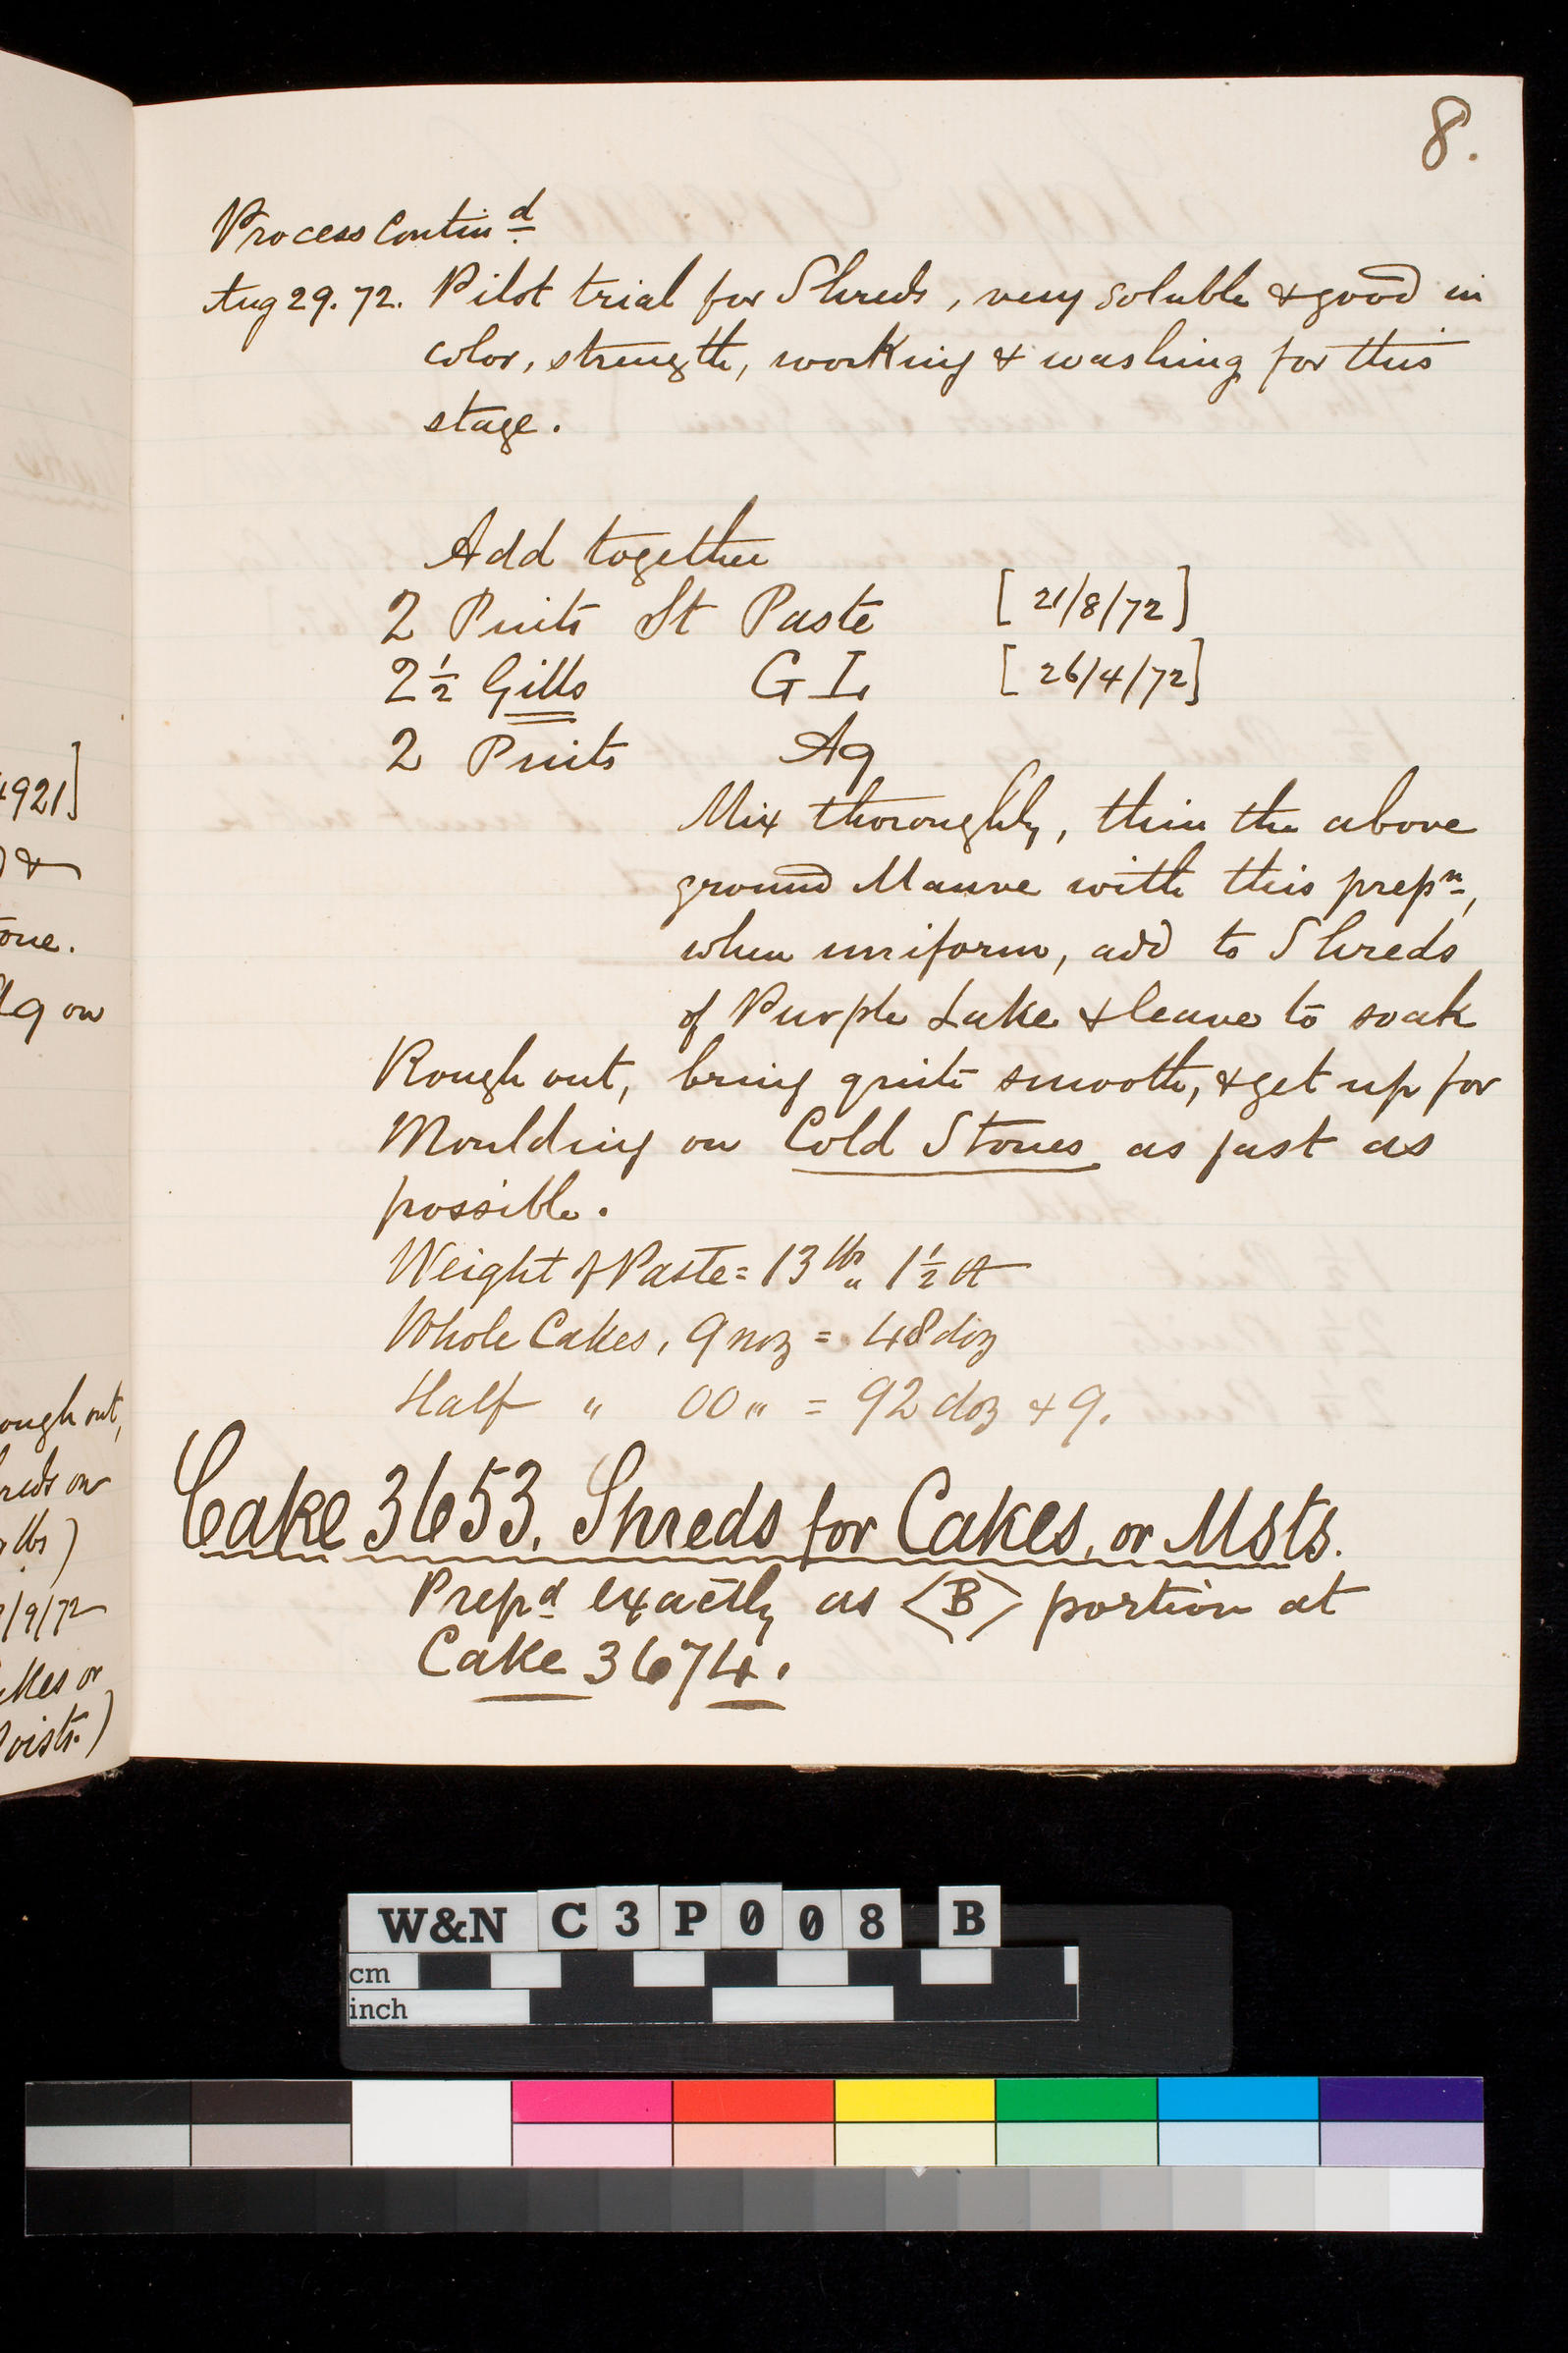 8.
Process Contin d
Aug 29. 72. Pilot trial for Shreds, very soluble & good in
color, strength, working & washing for this
stage.
Add together
2 Pints St Paste [21/8/72]
2½ Gills G L [26/4/72]
2 Pints Aq
Mix thoroughly, thin the above
ground Mauve with this prepn,
when uniform, add to Shreds
of Purple Lake & leave to soak
Rough out, bring quite smooth, & get up for
Moulding on Cold Stones as fast as
possible.
Weight of Paste = 13 lbs „ 1½
Whole Cakes, 9 noz = 48 doz
Half " 00 " = 92 doz & 9.
Cake 3653. Shreds for Cakes, or Msts.
Prepd exactly as <B> portion at
Cake 3674.
4921]
&
one.
Aq on
ough out,
reds on
lbs)
/9/72
akes or
oists.)
W&N C3P008 B
cm
inch